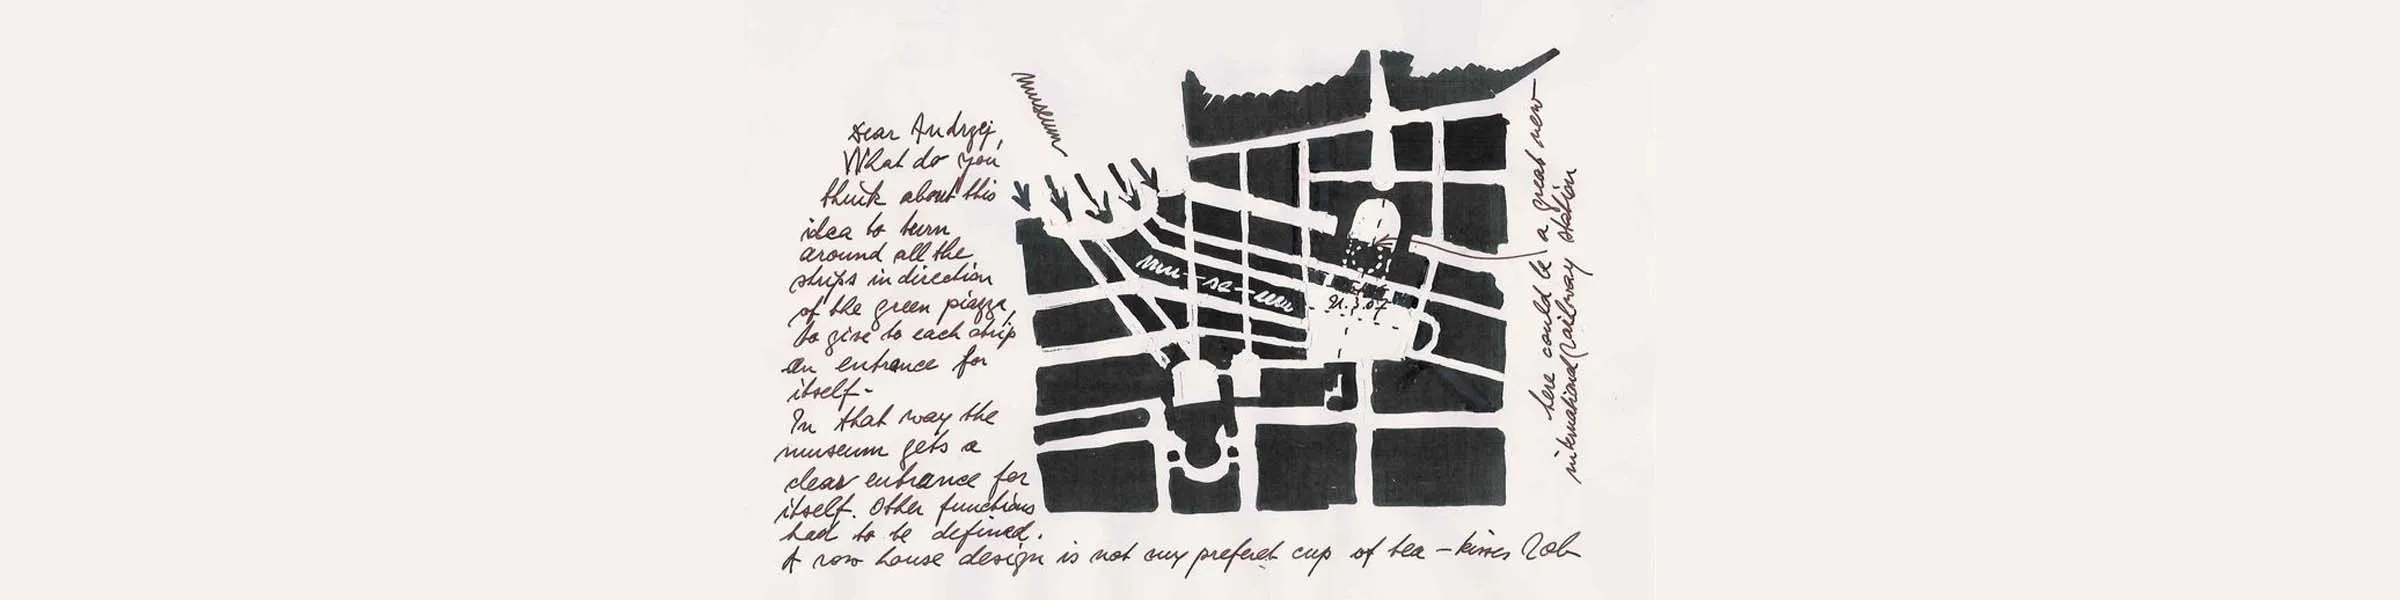 Dear Andrzej,
What do you
think about this
idea to turn
around all the
strips in direction
of the green piazza,
to give to each strip
an entrance for
itself-
In that way the
museum gets a
clear entrance for
itself. Other functions
had to be defined.
A row house design is not my preferet cup of tea - kisses Rob
museum
mu-se-um
21.3.07
here could be a great new
international railway station